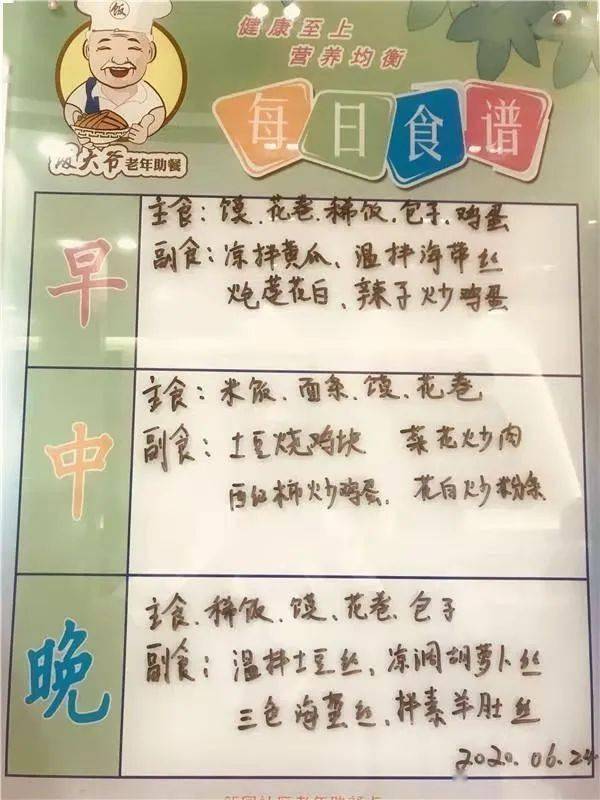 饭
健康至上
营养均衡
每日食谱
饭大爷老年助餐
早
主食：馍、花卷、稀饭、包子、鸡蛋
副食：凉拌黄瓜、温拌海带丝
炝莲花白、辣子炒鸡蛋
中
主食：米饭、面条、馍、花卷
副食：土豆烧鸡块 菜花炒肉
西红柿炒鸡蛋、花白炒粉条
晚
主食、稀饭、馍、花卷、包子
副食：温拌土豆丝、凉调胡萝卜丝
三色海蜇丝、拌素羊肚丝
2020.06.24